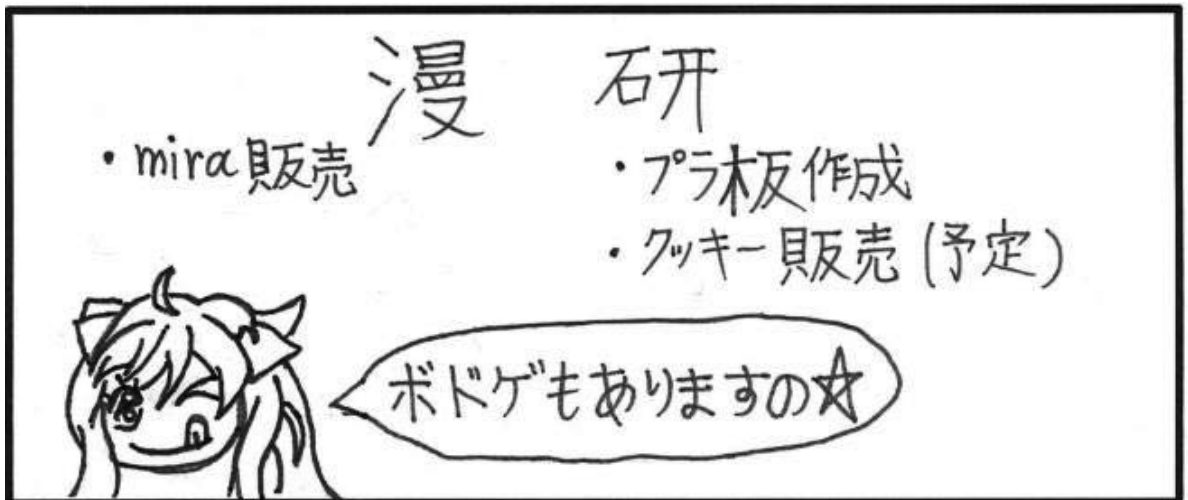 漫 研
・mira販売
・プラ板作成
・クッキー販売(予定)
ボドゲもありますの☆